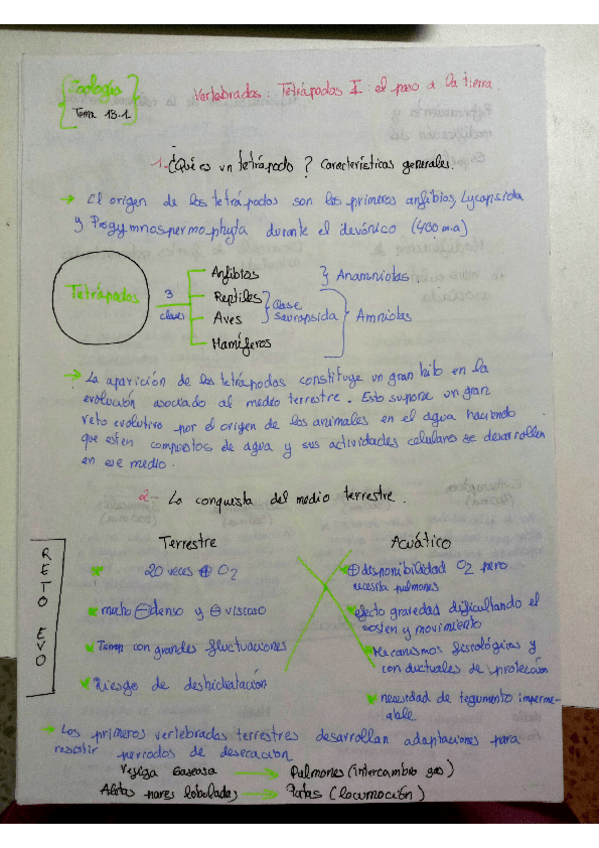 Zoología
Tema 13.1
Vertebrados: Tetrápodos I: el paso a la tierra.
1- ¿Qué es un tetrápodo? Características generales.
→ El origen de los tetrápodos son los primeros anfibios, Lycopsida
y Progymnospermophyta durante el devónico (400 m.a)
Tetrápodos
3
clases
Anfibios } Anamniotas.
Reptiles
Aves
} Clase
Sauropsida
Mamíferos
} Amniotas
→ La aparición de los tetrápodos constituye un gran hito en la
evolución asociado al medio terrestre. Esto supone un gran
reto evolutivo por el origen de los animales en el agua haciendo
que esten compuestos de agua y sus actividades celulares se desarrollen
en ese medio.
2- La conquista del medio terrestre.
RETO EVO
Terrestre
* 20 veces ⊕ O2
* mucho ⊖ denso y ⊖ viscoso
* Temp con grandes fluctuaciones
* Riesgo de deshidratación
Acuático
⊕ disponibilidad O2 pero
necesita pulmones
* efecto gravedad dificultando el
sosten y movimiento
* Mecanismos fisiológicos y
conductuales de protección
* necesidad de tegumento imperme-
able
→ Los primeros vertebrados terrestres desarrollan adaptaciones para
resistir periodos de desecación
Vejiga Gaseosa → Pulmones (intercambio gas)
Aletas pares lobuladas → Patas (locomoción)